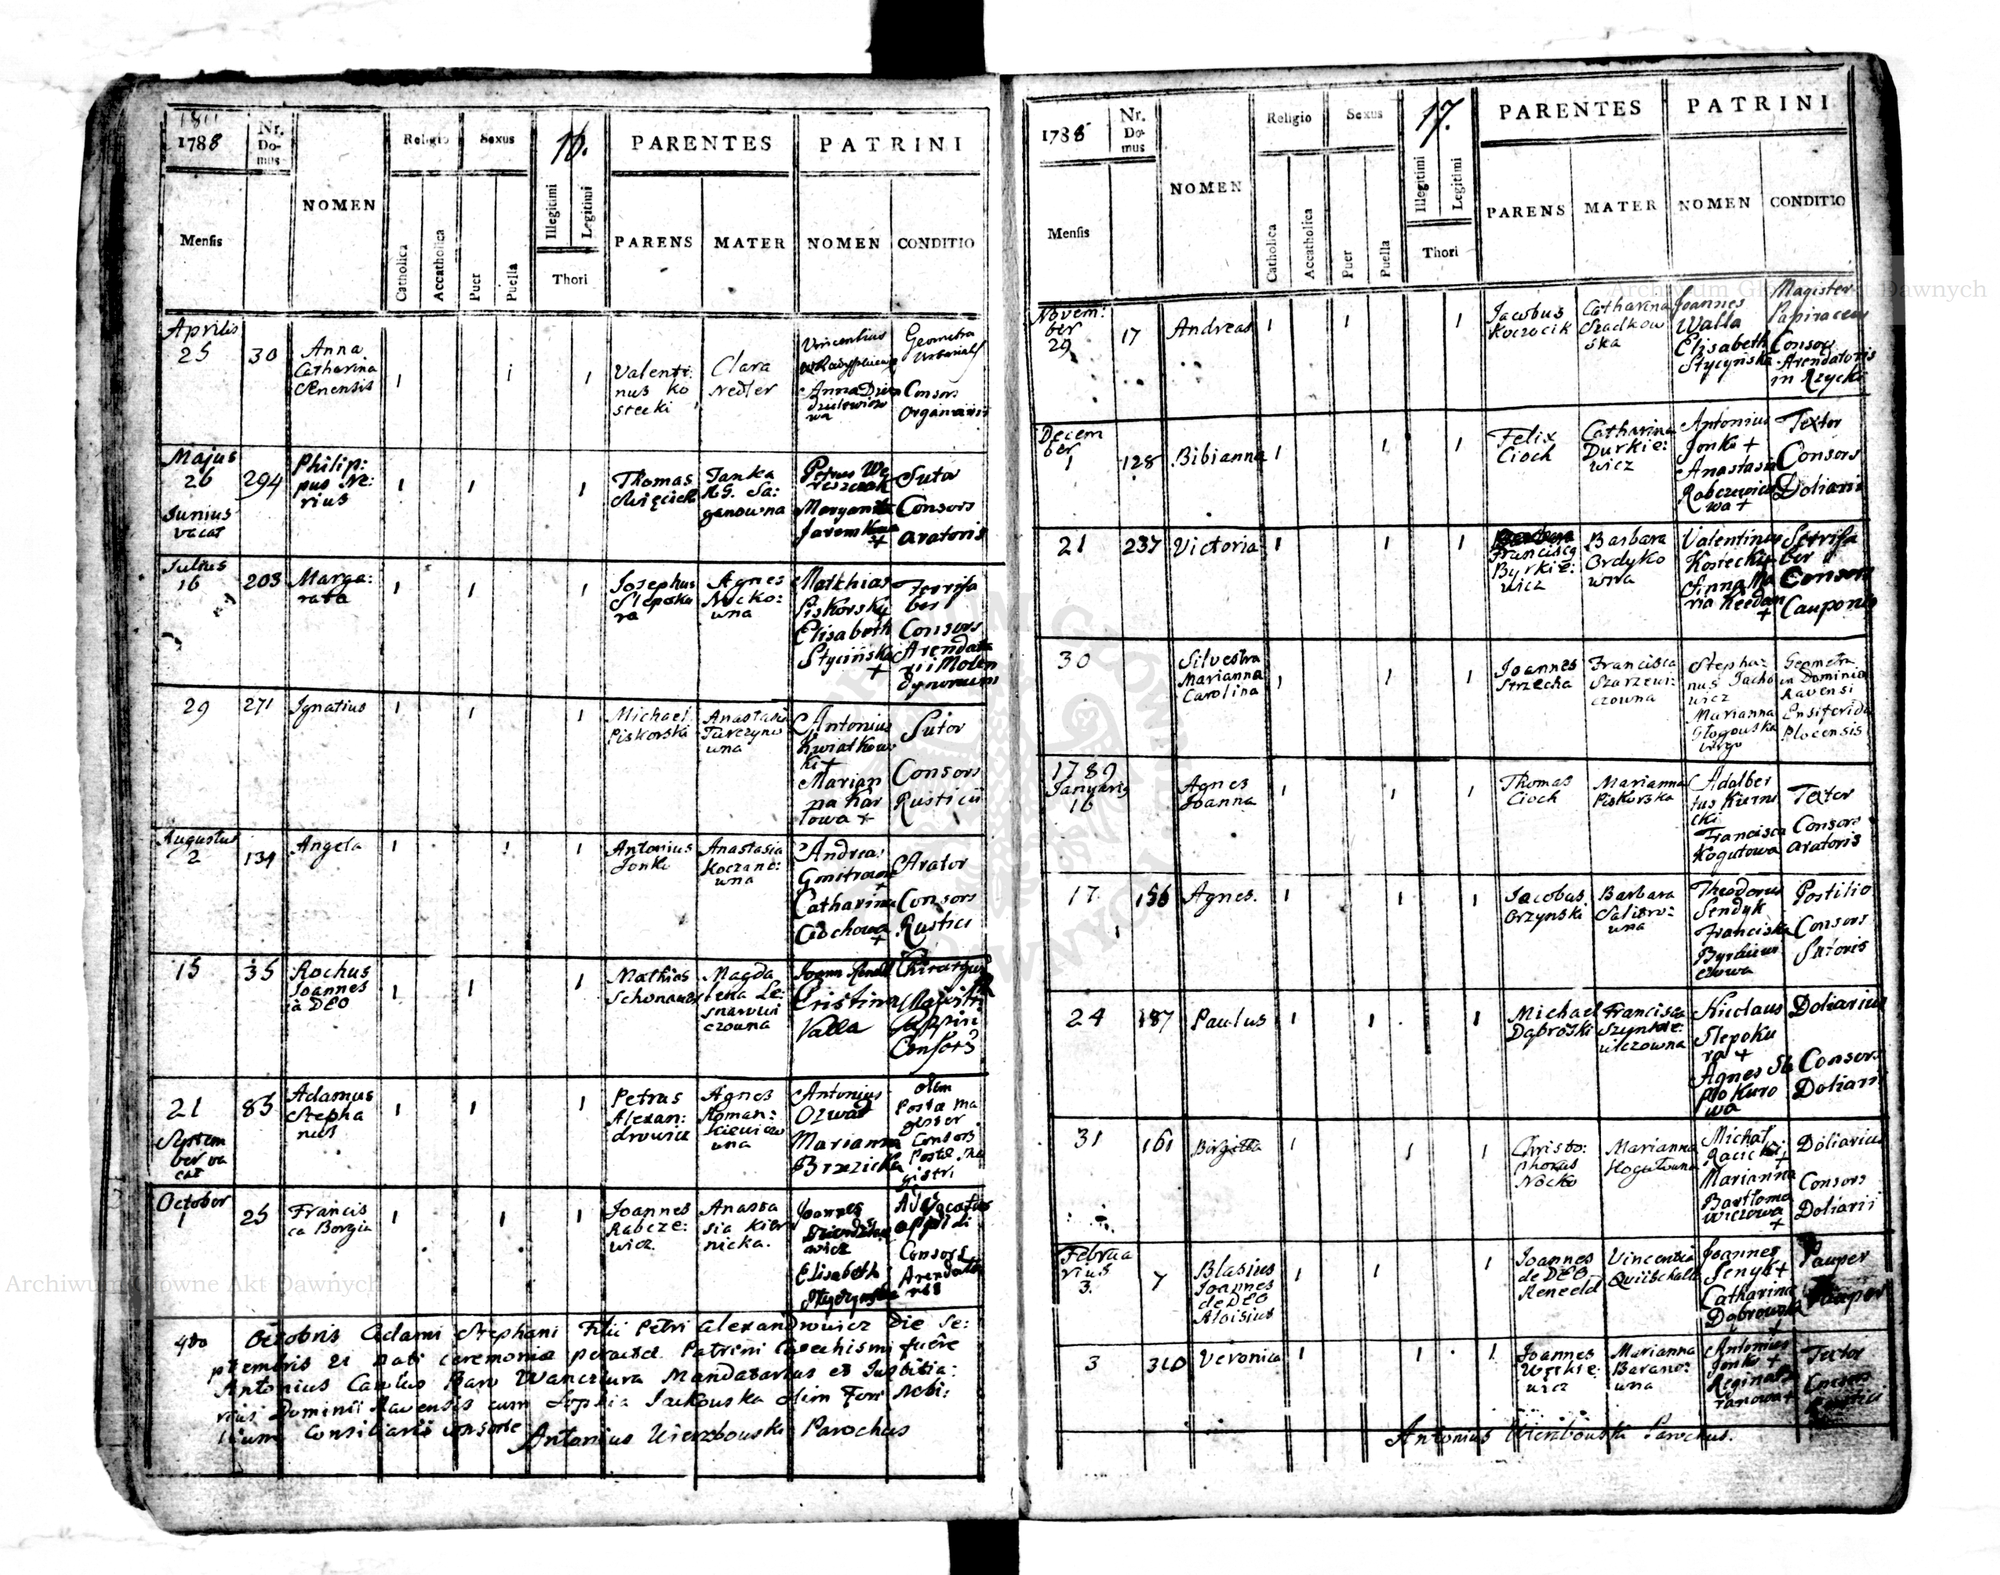 1788
Nr. Domus
NOMEN
Religio
Sexus
16.
PARENTES
PATRINI
Mensis
Catholica
Accatholica
Puer
Puella
Illegitimi
Legitimi
Thori
PARENS
MATER
NOMEN
CONDITIO
Aprilis
25
30
Anna
Catharina
Senensis
1
1
1
Valenti:
nus Ko
stecki
Clara
Nedler
Vincentius
Geometra
Consors
Organarii
Majus
26
294
Philip:
pus Ne:
rius
1
1
1
Thomas
Swięcick
Tanka
Sa:
ganowna
Petrus We
reszczak
Margareta
Jaremkowa
+
Sutor
Consors
aratoris
Junius
vacat
Julius
16
203
Marga:
rata
1
1
1
Josephus
Slepoku
ra
Agnes
Nocko:
wna
Matthias
Piskorsky
Elisabeth
Stycińska
+
Serrifa
ber
Consors
Arendato
rii Molen
dynorum
29
271
Ignatius
1
1
1
Michael
Piskorski
Anastasia
Turczyno
wna
Antonius
Kwiatkows
ki +
Marian
na Kar
lowa +
Sutor
Consors
Rusticii
Augustus
2
134
Angela
1
1
1
Antonius
Jonko
Anastasia
Koczano:
wna
Andreas
Catharina
Ciochowa
+
Arator
Consors
Rustici
15
35
Rochus
Joannes
à DEO
1
1
1
Mathias
Magda
lena Le:
snarowi
czowna
Cristina
Valla
Chirurgus
Magistri
Consors
21
83
Adamus
Stepha
nus
1
1
1
Petrus
Alexan:
drowicz
Agnes
Roman:
kiewiczow
na
Antonius
Ozwad
Marianna
Brzezicka
olim
Postæ Ma
gister
Consors
Postæ Ma
gistri
Septem
ber va
cat
October
1
25
Francis
ca Borgia
1
1
1
Joannes
Rabcze:
wicz
Anasta
sia Kier
nicka.
Joannes
wicz
Elisabeth
Advocatus
oppidi
Consors
Arendato
ris
4to Octobris Adami Stephani Filii Petri Alexandrowicz Die Se:
ptembris 21 nati ceremoniæ peractæ. Patrini Catechismi fuere
Antonius Carolus Baro Wanczura Mandatarius et Justitia:
rius Dominii Ravensis cum Sophia Jackowska olim Fori Nobi:
lium Consiliarii consorte
Antonius Wierzbowski Parochus
1788
Nr. Domus
NOMEN
Religio
Sexus
17.
PARENTES
PATRINI
Mensis
Catholica
Accatholica
Puer
Puella
Illegitimi
Legitimi
Thori
PARENS
MATER
NOMEN
CONDITIO
Novem:
ber
29
17
Andreas
1
1
1
Jacobus
Koczocik
Catharina
Szadkow
ska
Joannes
Walla
Elisabeth
Stycyńska
Magister
Papiraceus
Consors
Arendatoris
in Rzycki
Decem
ber
1
128
Bibianna
1
1
1
Felix
Cioch
Catharina
Durkie:
wicz
Antonius
Jonko +
Anastasia
Rabczewiczo
wa +
Textor
Consors
Doliarii
21
237
Victoria
1
1
1
Franciscg
Byrkie:
wicz
Barbara
Ordyko
wna
Valentinus
Kostecki
Anna Ma
ria
+
Serrifa
ber
Consors
Cauponis
30
Silvestra
Marianna
Carolina
1
1
1
Joannes
Strzecha
Francisca
Szarzewi:
czowna
Stepha:
nus Jacho
wicz
Marianna
Głogowska
virgo
Geometra
in Dominio
Ravensi
Ensiferida
Plocensis
1789
Januarius
16
Agnes
Joanna
1
1
1
Thomas
Cioch
Marianna
Piskorska
Adalber
tus Kierni
cki
Francisca
Kogutowa
Textor
Consors
aratoris
17
156
Agnes.
1
1
1
Jacobus
Orzynski
Barbara
Saliero:
wna
Theodorus
Sendyk
Franciska
Byrkiewi
czowa
Postilio
Consors
Sutoris
24
187
Paulus
1
1
1
Michael
Dąbroski
Francisca
Szynkie:
wiczowna
Nicolaus
Slepoku
ra +
Agnes Sle
pokuro
wa
Doliarius
Consors
Doliarii
31
161
Birgitta
1
1
1
Christo:
phorus
Nocko
Marianna
Kogutowna
Michał
Racicki
+
Marianna
Bartlomo
wiczowa
+
Doliarius
Consors
Doliarii
Februa
rius
3.
7
Blasius
Joannes
de DEO
Aloisius
1
1
1
Joannes
de DEO
Reneeld
Vincentia
Quiischalla
Joannes
Senyk +
Catharina
Dąbrowska
+
Pauper
Pauper
3
310
Veronica
1
1
1
Joannes
wicz
Marianna
Barano:
wna
Antonius
Jonko +
Regina
ranowa +
Textor
Consors
Rustici
Antonius Wierzbowski Parochus.
Archiwum Główne Akt Dawnych
Archiwum Główne Akt Dawnych